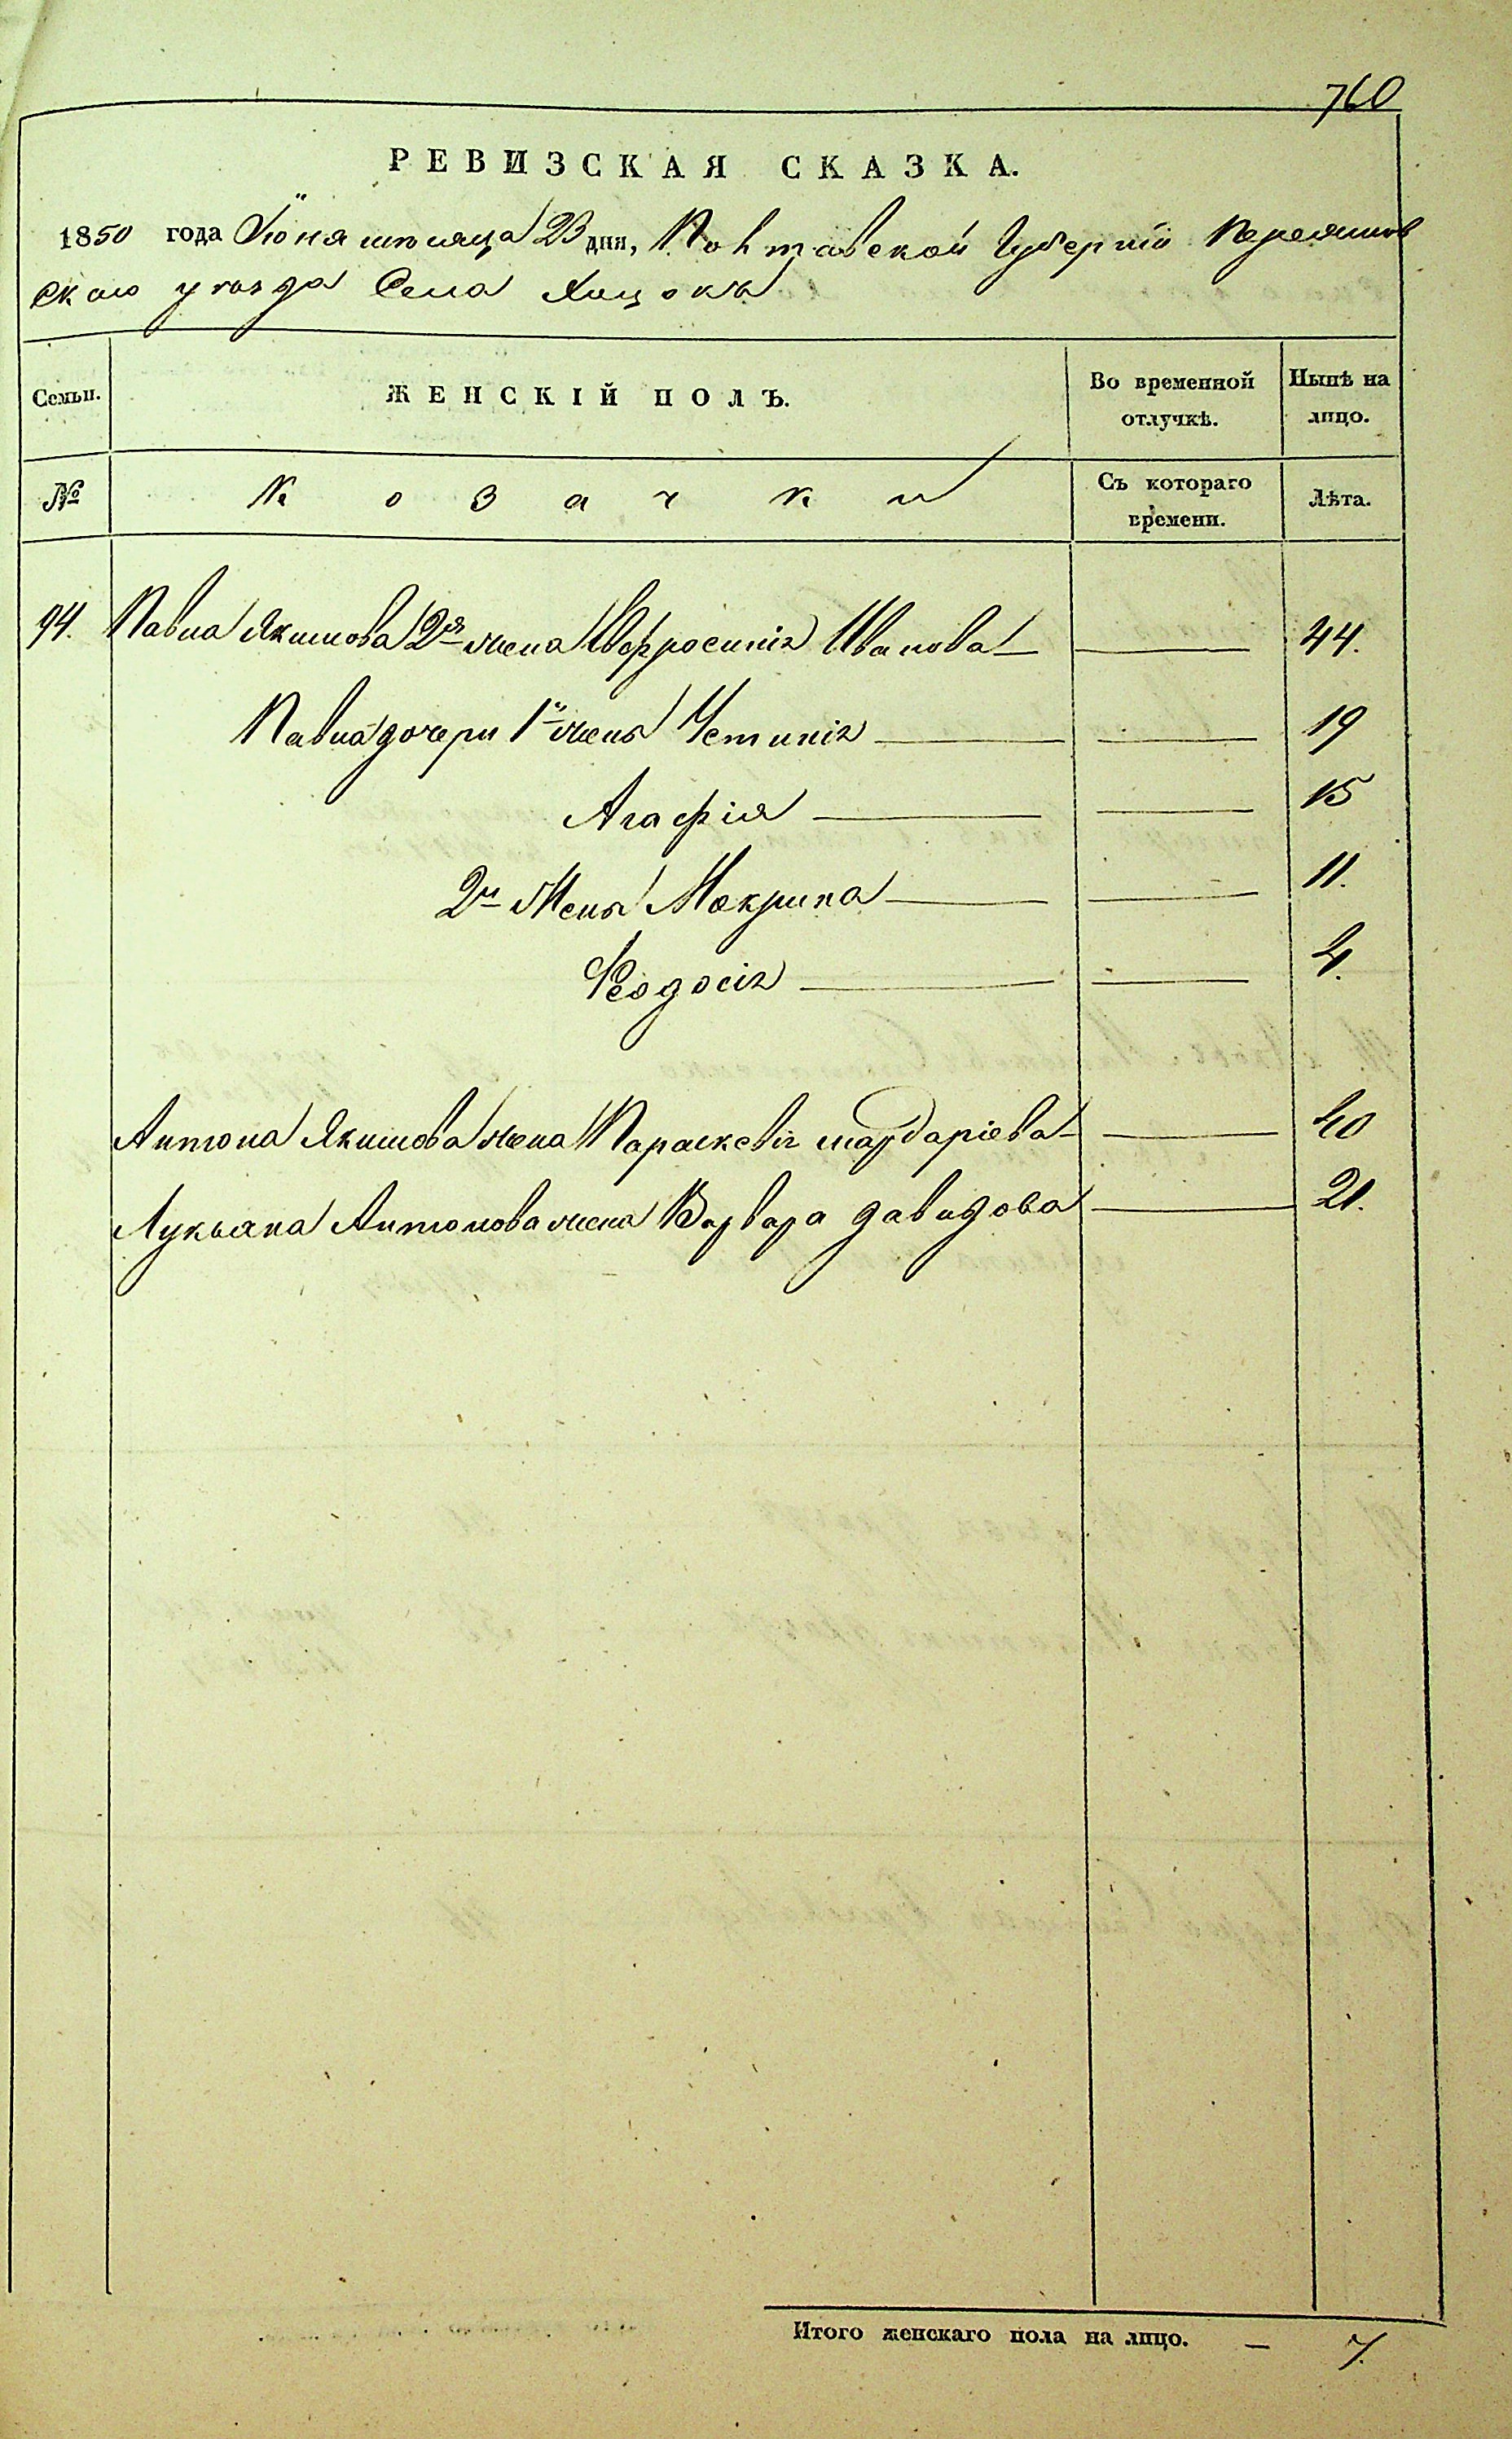 760
РЕВИЗСКАЯ СКАЗКА.
1850 года Іюня мѣсяца 23 дня, Полтавской Губерніи Переяслов
скаго уѣзда Села Хоцокъ
Семьи. ЖЕНСКІЙ ПОЛЪ. Во временной отлучкѣ. Нынѣ на лицо.
№ Козачки Съ котораго времени. Лѣта.
94. Павла Якимова 2я жена Евфросинія Иванова 44.
Павла дочери 1й жены Устинія 19
Агафія 15
2й Жены Макрина 11.
Феодосія 4.
Антона Якимова жена Параскевія Мардаріева 40
Лукьяна Антонова жена Варвара Давидова 21.
Итого женскаго пола на лицо. — 7.